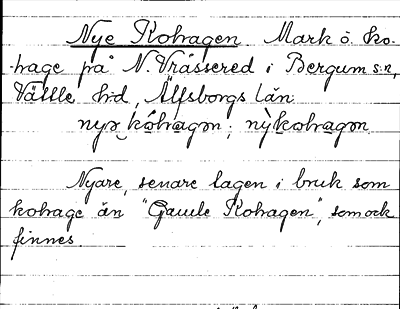 Nye Kohagen. Mark o. ko-
hage på N. Vråssered i Bergum s:n,
Vättle h:d, Älfsborgs län
nyə kóhagən; nỳkohagən
Nyare, senare tagen i bruk som
kohage än "Gamle Kohagen", som ock
finnes.